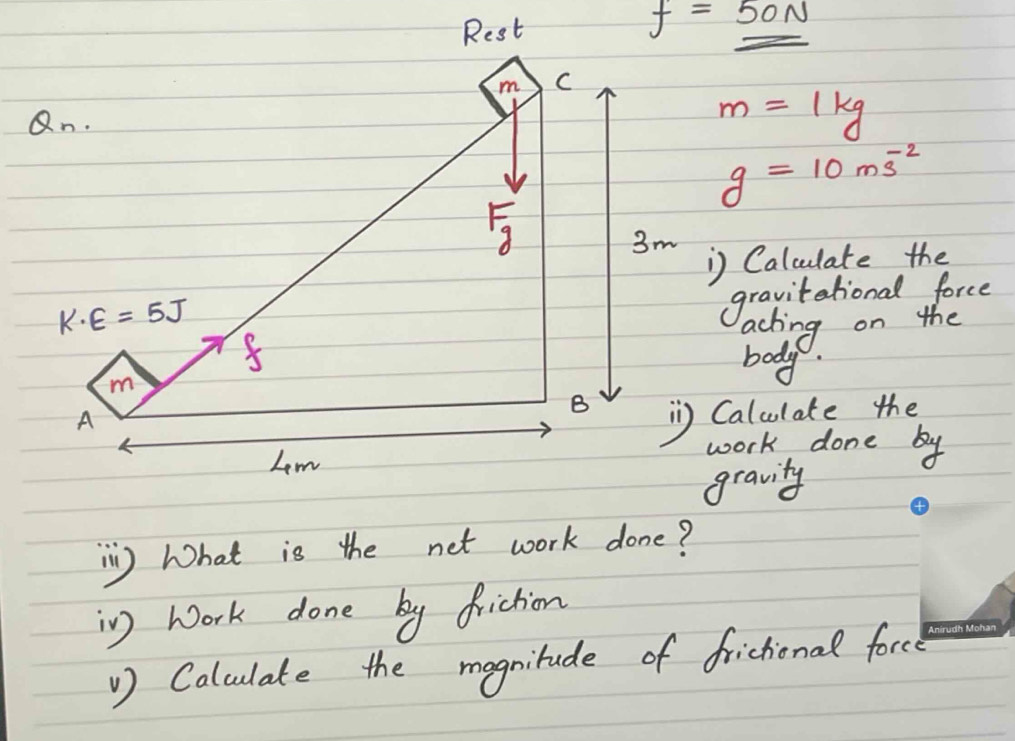 f = 50N
Rest
m
C
Qn.
m = 1 kg
g = 10 ms⁻²
Fg
3m
i) Calculate the
gravitational force
acting on the
body.
K.E = 5J
f
m
A
B
4m
ii) Calculate the
work done by
gravity
iii) What is the net work done?
iv) Work done by friction
v) Calculate the magnitude of frictional force
Anirudh Mohan